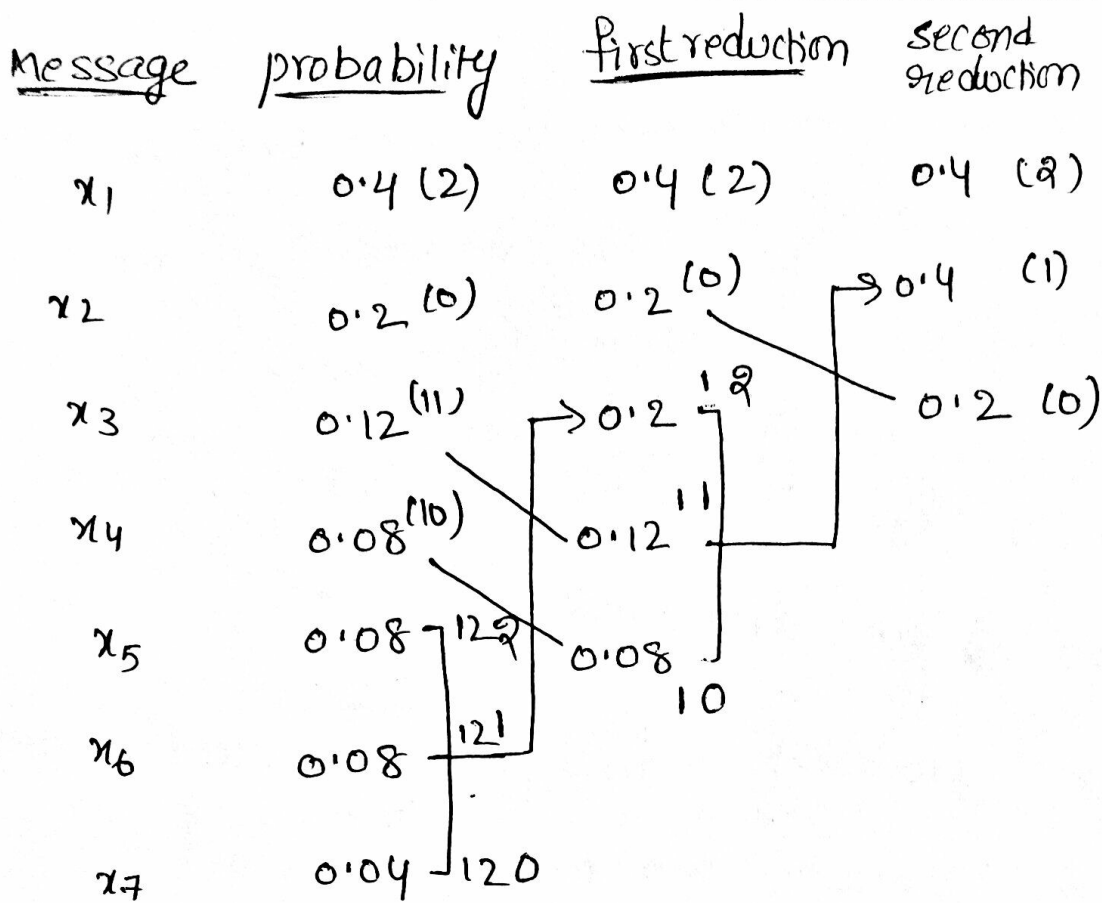 Message probability first reduction second reduction
x1 0.4 (2) 0.4 (2) 0.4 (2)
x2 0.2 (0) 0.2 (0) 0.4 (1)
x3 0.12 (11) 0.2 12 0.2 (0)
x4 0.08 (10) 0.12 11
x5 0.08 122 0.08 10
x6 0.08 121
x7 0.04 120